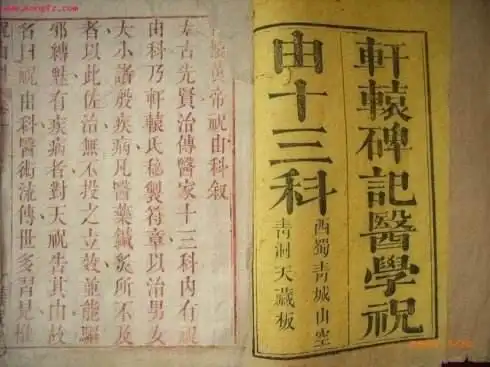 軒轅碑記醫學祝
由十三科
西蜀青城山空
青洞天藏板
轅黃帝祝由科叙
太古先賢治傳醫家十三科內有祝
由科乃軒轅氏秘製符章以治男女
大小諸般疾病凡醫藥鍼炙所不及
者以此佐治無不投之立效並能驅
邪縛魅有疾病者對天祝告其由故
名曰祝由科醫術流傳世多習見惟